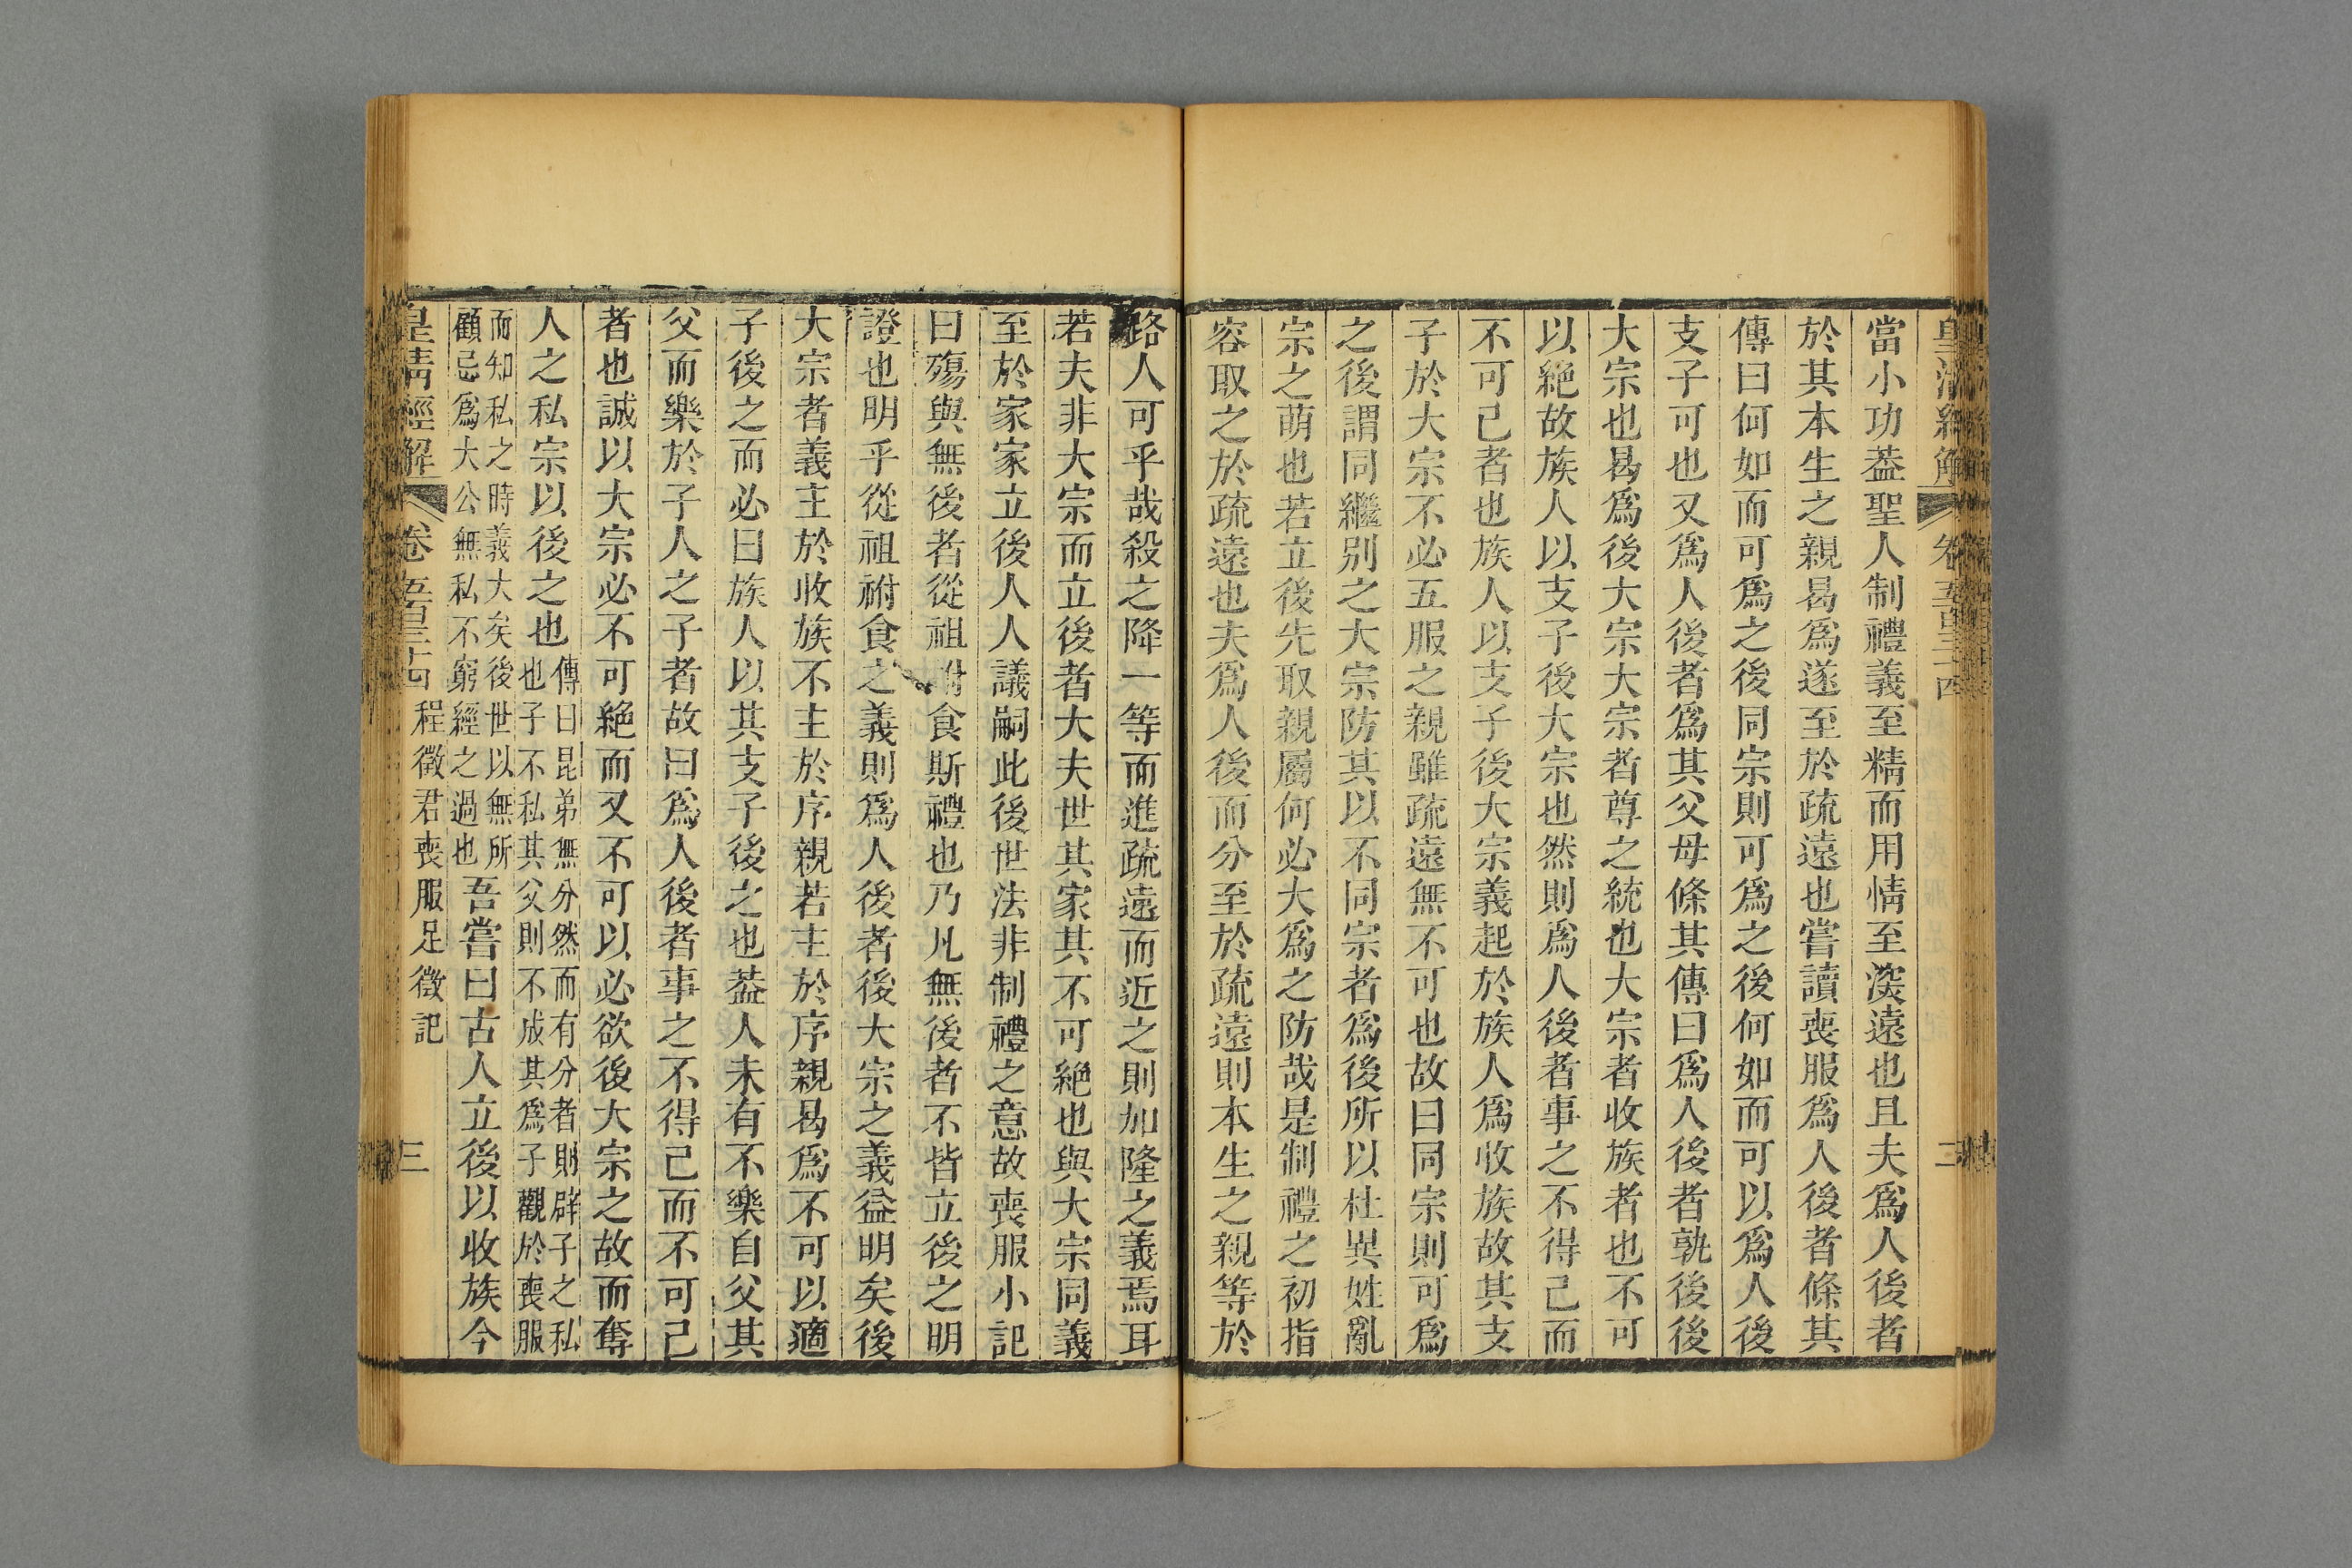 皇清經解 卷五百三十四 二
當小功葢聖人制禮義至精而用情至深遠也且夫爲人後者
於其本生之親曷爲遂至於疏遠也嘗讀喪服爲人後者條其
傳曰何如而可爲之後同宗則可爲之後何如而可以爲人後
支子可也又爲人後者爲其父母條其傳曰爲人後者孰後後
大宗也曷爲後大宗大宗者尊之統也大宗者收族者也不可
以絕故族人以支子後大宗也然則爲人後者事之不得已而
不可已者也族人以支子後大宗義起於族人爲收族故其支
子於大宗不必五服之親雖疏遠無不可也故曰同宗則可爲
之後謂同繼别之大宗防其以不同宗者爲後所以杜異姓亂
宗之萌也若立後先取親屬何必大爲之防哉是制禮之初指
容取之於疏遠也夫爲人後而分至於疏遠則本生之親等於
路人可乎哉殺之降一等而進疏遠而近之則加隆之義焉耳
若夫非大宗而立後者大夫世其家其不可絕也與大宗同義
至於家家立後人人議嗣此後世法非制禮之意故喪服小記
曰殤與無後者從祖祔食斯禮也乃凡無後者不皆立後之明
證也明乎從祖祔食之義則爲人後者後大宗之義益明矣後
大宗者義主於收族不主於序親若主於序親曷爲不可以適
子後之而必曰族人以其支子後之也葢人未有不樂自父其
父而樂於子人之子者故曰爲人後者事之不得已而不可已
者也誠以大宗必不可絕而又不可以必欲後大宗之故而奪
人之私宗以後之也傳曰昆弟無分然而有分者則辟子之私
也子不私其父則不成其爲子觀於喪服
而知私之時義大矣後世以無所
顧忌爲大公無私不窮經之過也吾嘗曰古人立後以收族今
皇清經解 卷五百三十四 程徵君喪服足徵記 三